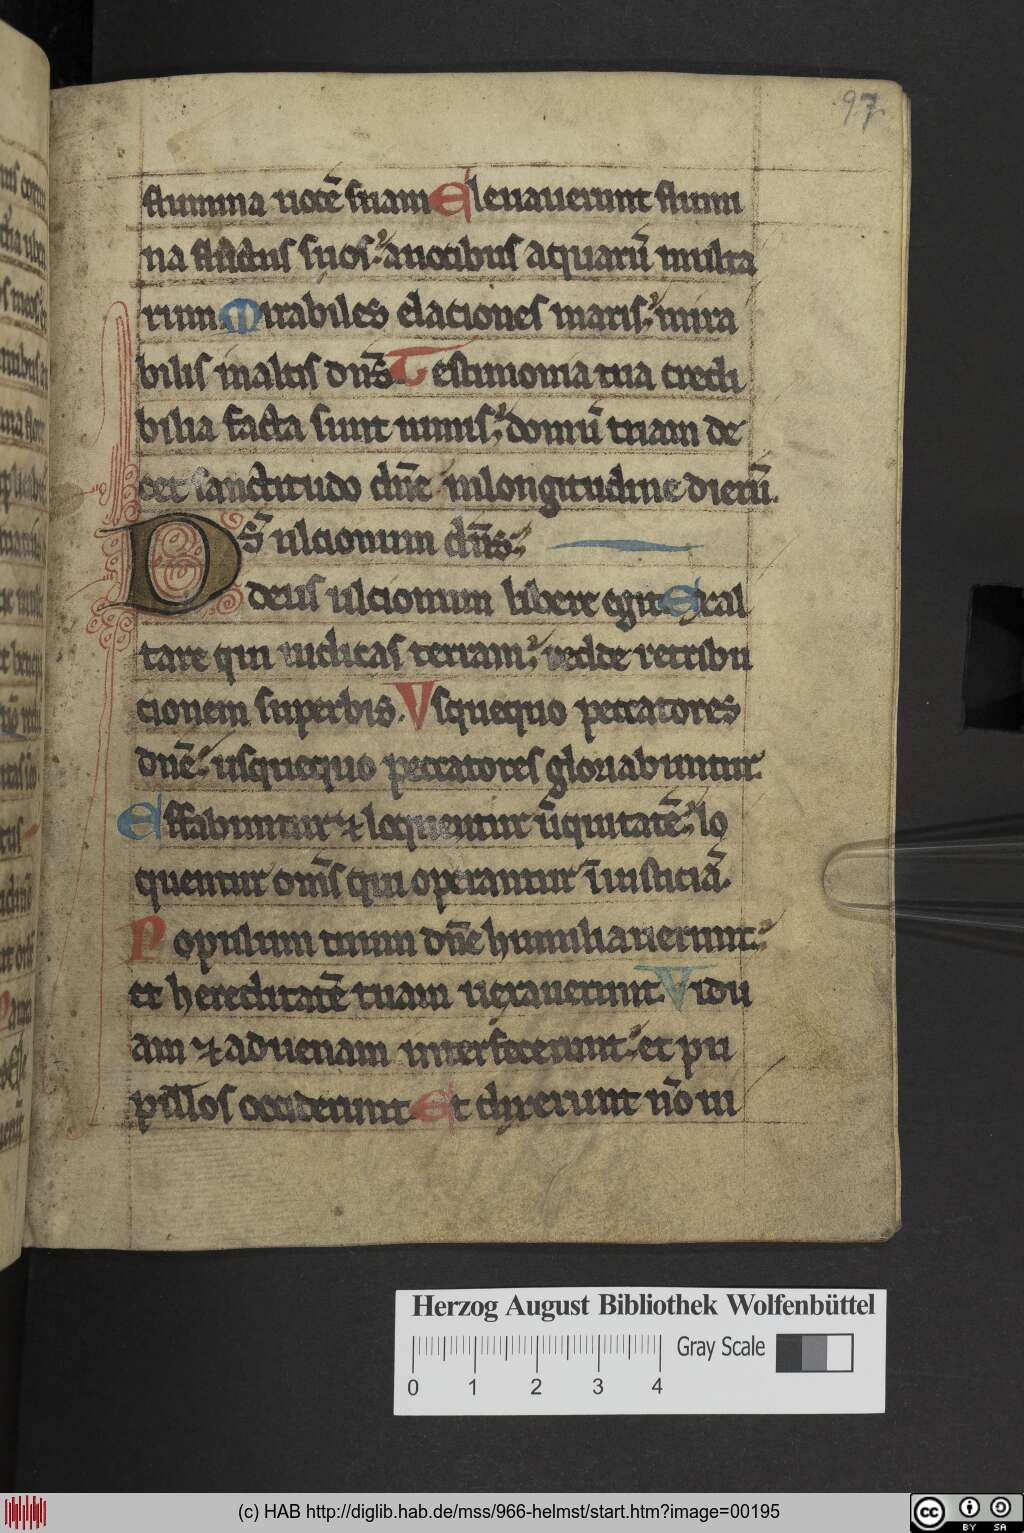 97
flumina uocē suam Eleuauerunt flumi
na fluctus suos. auocibus aquarū multa
rum. Mirabiles elaciones maris. mira
bilis inaltis dn̄s Testimonia tua credi
bilia facta sunt nimis. domū tuam de
cet sanctitudo dn̄e inlongitudine dierū.
D s̄ ulcionum dn̄s.
deus ulcionum libere egit Exal
tare qui iudicas terram. redde retribu
cionem superbis. Vsquequo peccatores
dn̄e. usquequo peccatores gloriabuntur.
Effabuntur ⁊ loquentur īiquitatē. lo
quentur om̄s qui operantur īiusticiā.
Populum tuum dn̄e humiliauerunt.
et hereditatē tuam uexauerunt Vidu
am ⁊ aduenam interfecerunt. et pu
pillos occiderunt Et dixerunt nō ui
Herzog August Bibliothek Wolfenbüttel
Gray Scale
0 1 2 3 4
(c) HAB http://diglib.hab.de/mss/966-helmst/start.htm?image=00195
cc BY SA